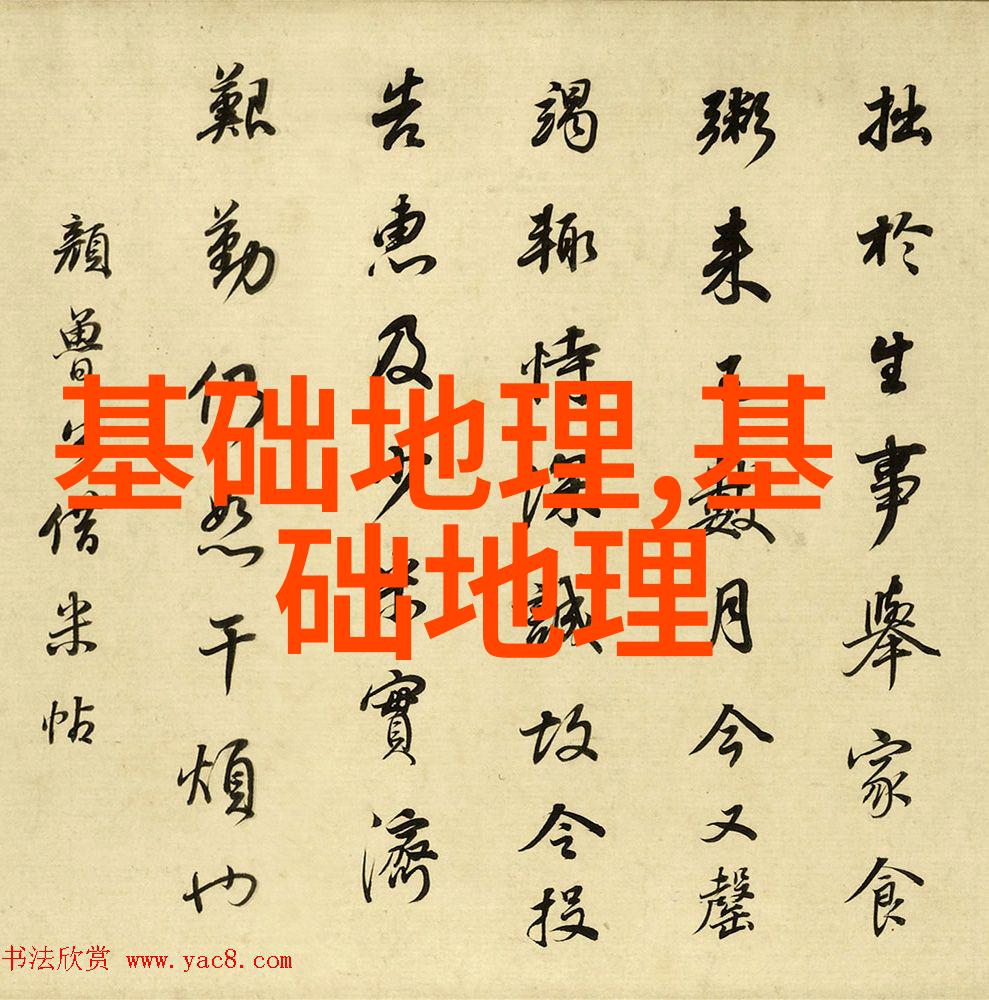 拙於生事舉家食
粥来已數月今又罄
竭輙恃深誠故令投
告惠及少米實濟
艱勤仍恕干煩也
顏魯公借米帖
基础地理,基
础地理
书法欣赏 www.yac8.com